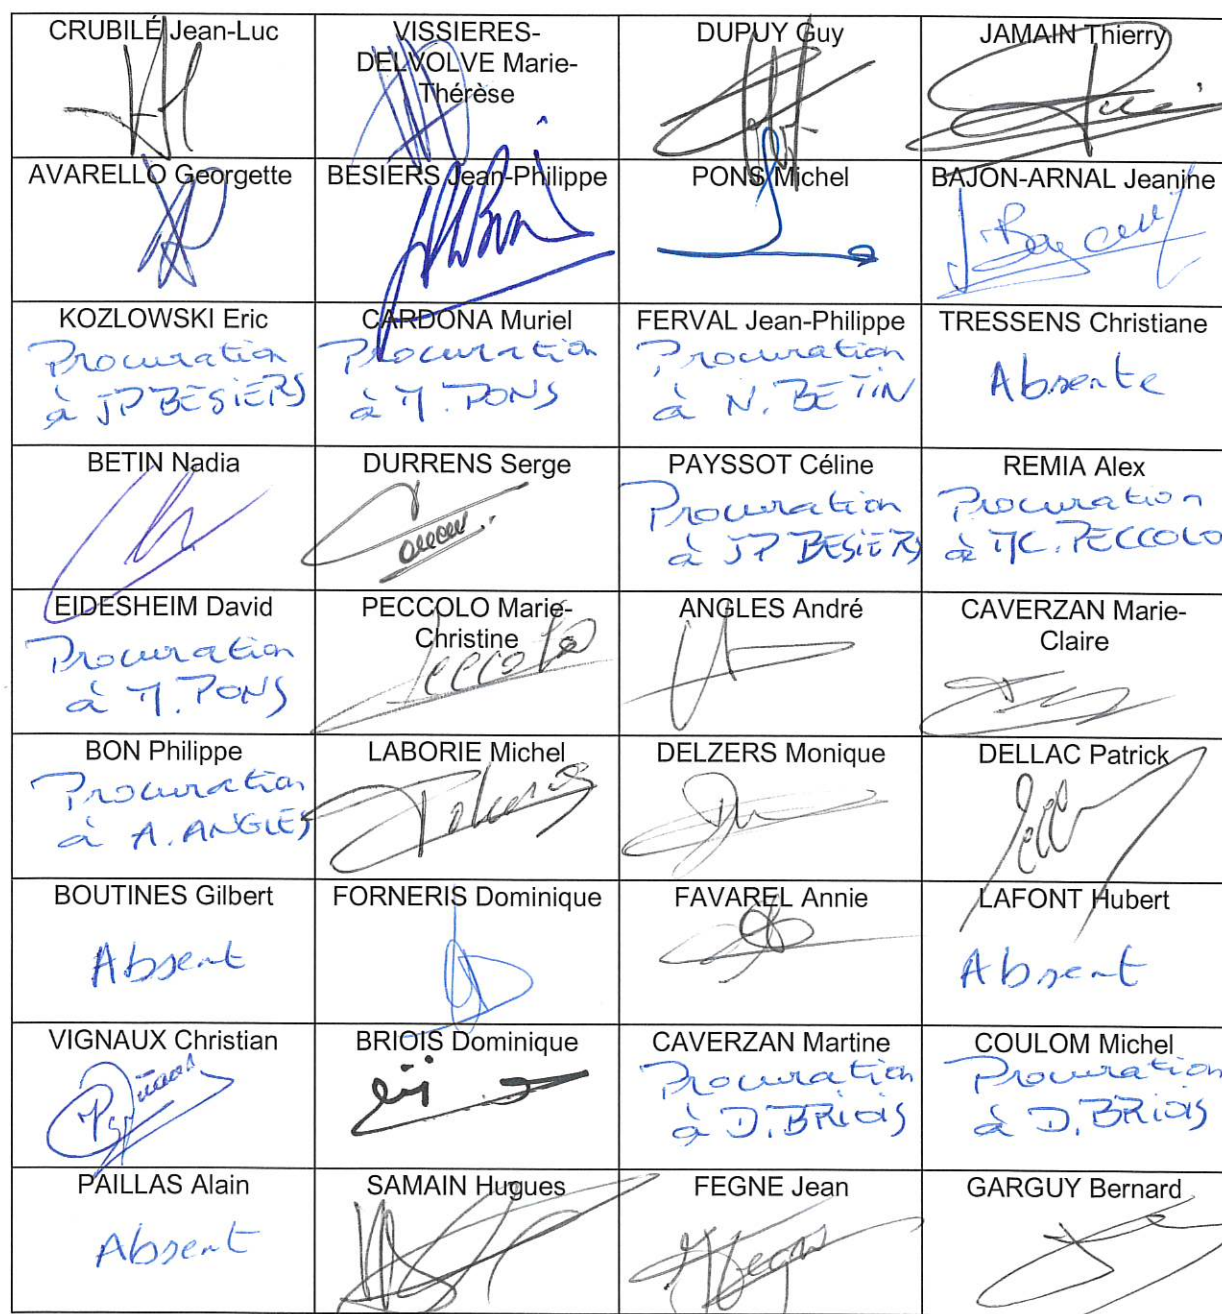 CRUBILÉ Jean-Luc
VISSIERES-
DELVOLVE Marie-
Thérèse
DUPUY Guy
JAMAIN Thierry
AVARELLO Georgette
BESIERS Jean-Philippe
PONS Michel
BAJON-ARNAL Jeanine
KOZLOWSKI Eric
Procuration
à JP BESIERS
CARDONA Muriel
Procuration
à M. PONS
FERVAL Jean-Philippe
Procuration
à N. BETIN
TRESSENS Christiane
Absente
BETIN Nadia
DURRENS Serge
PAYSSOT Céline
Procuration
à JP BESIERS
REMIA Alex
Procuration
à MC. PECCOLO
EIDESHEIM David
Procuration
à M. PONS
PECCOLO Marie-
Christine
Peccolo
ANGLES André
CAVERZAN Marie-
Claire
BON Philippe
Procuration
à A. ANGLES
LABORIE Michel
DELZERS Monique
DELLAC Patrick
BOUTINES Gilbert
Absent
FORNERIS Dominique
FAVAREL Annie
LAFONT Hubert
Absent
VIGNAUX Christian
BRIOIS Dominique
CAVERZAN Martine
Procuration
à D. BRIOIS
COULOM Michel
Procuration
à D. BRIOIS
PAILLAS Alain
Absent
SAMAIN Hugues
FEGNE Jean
GARGUY Bernard